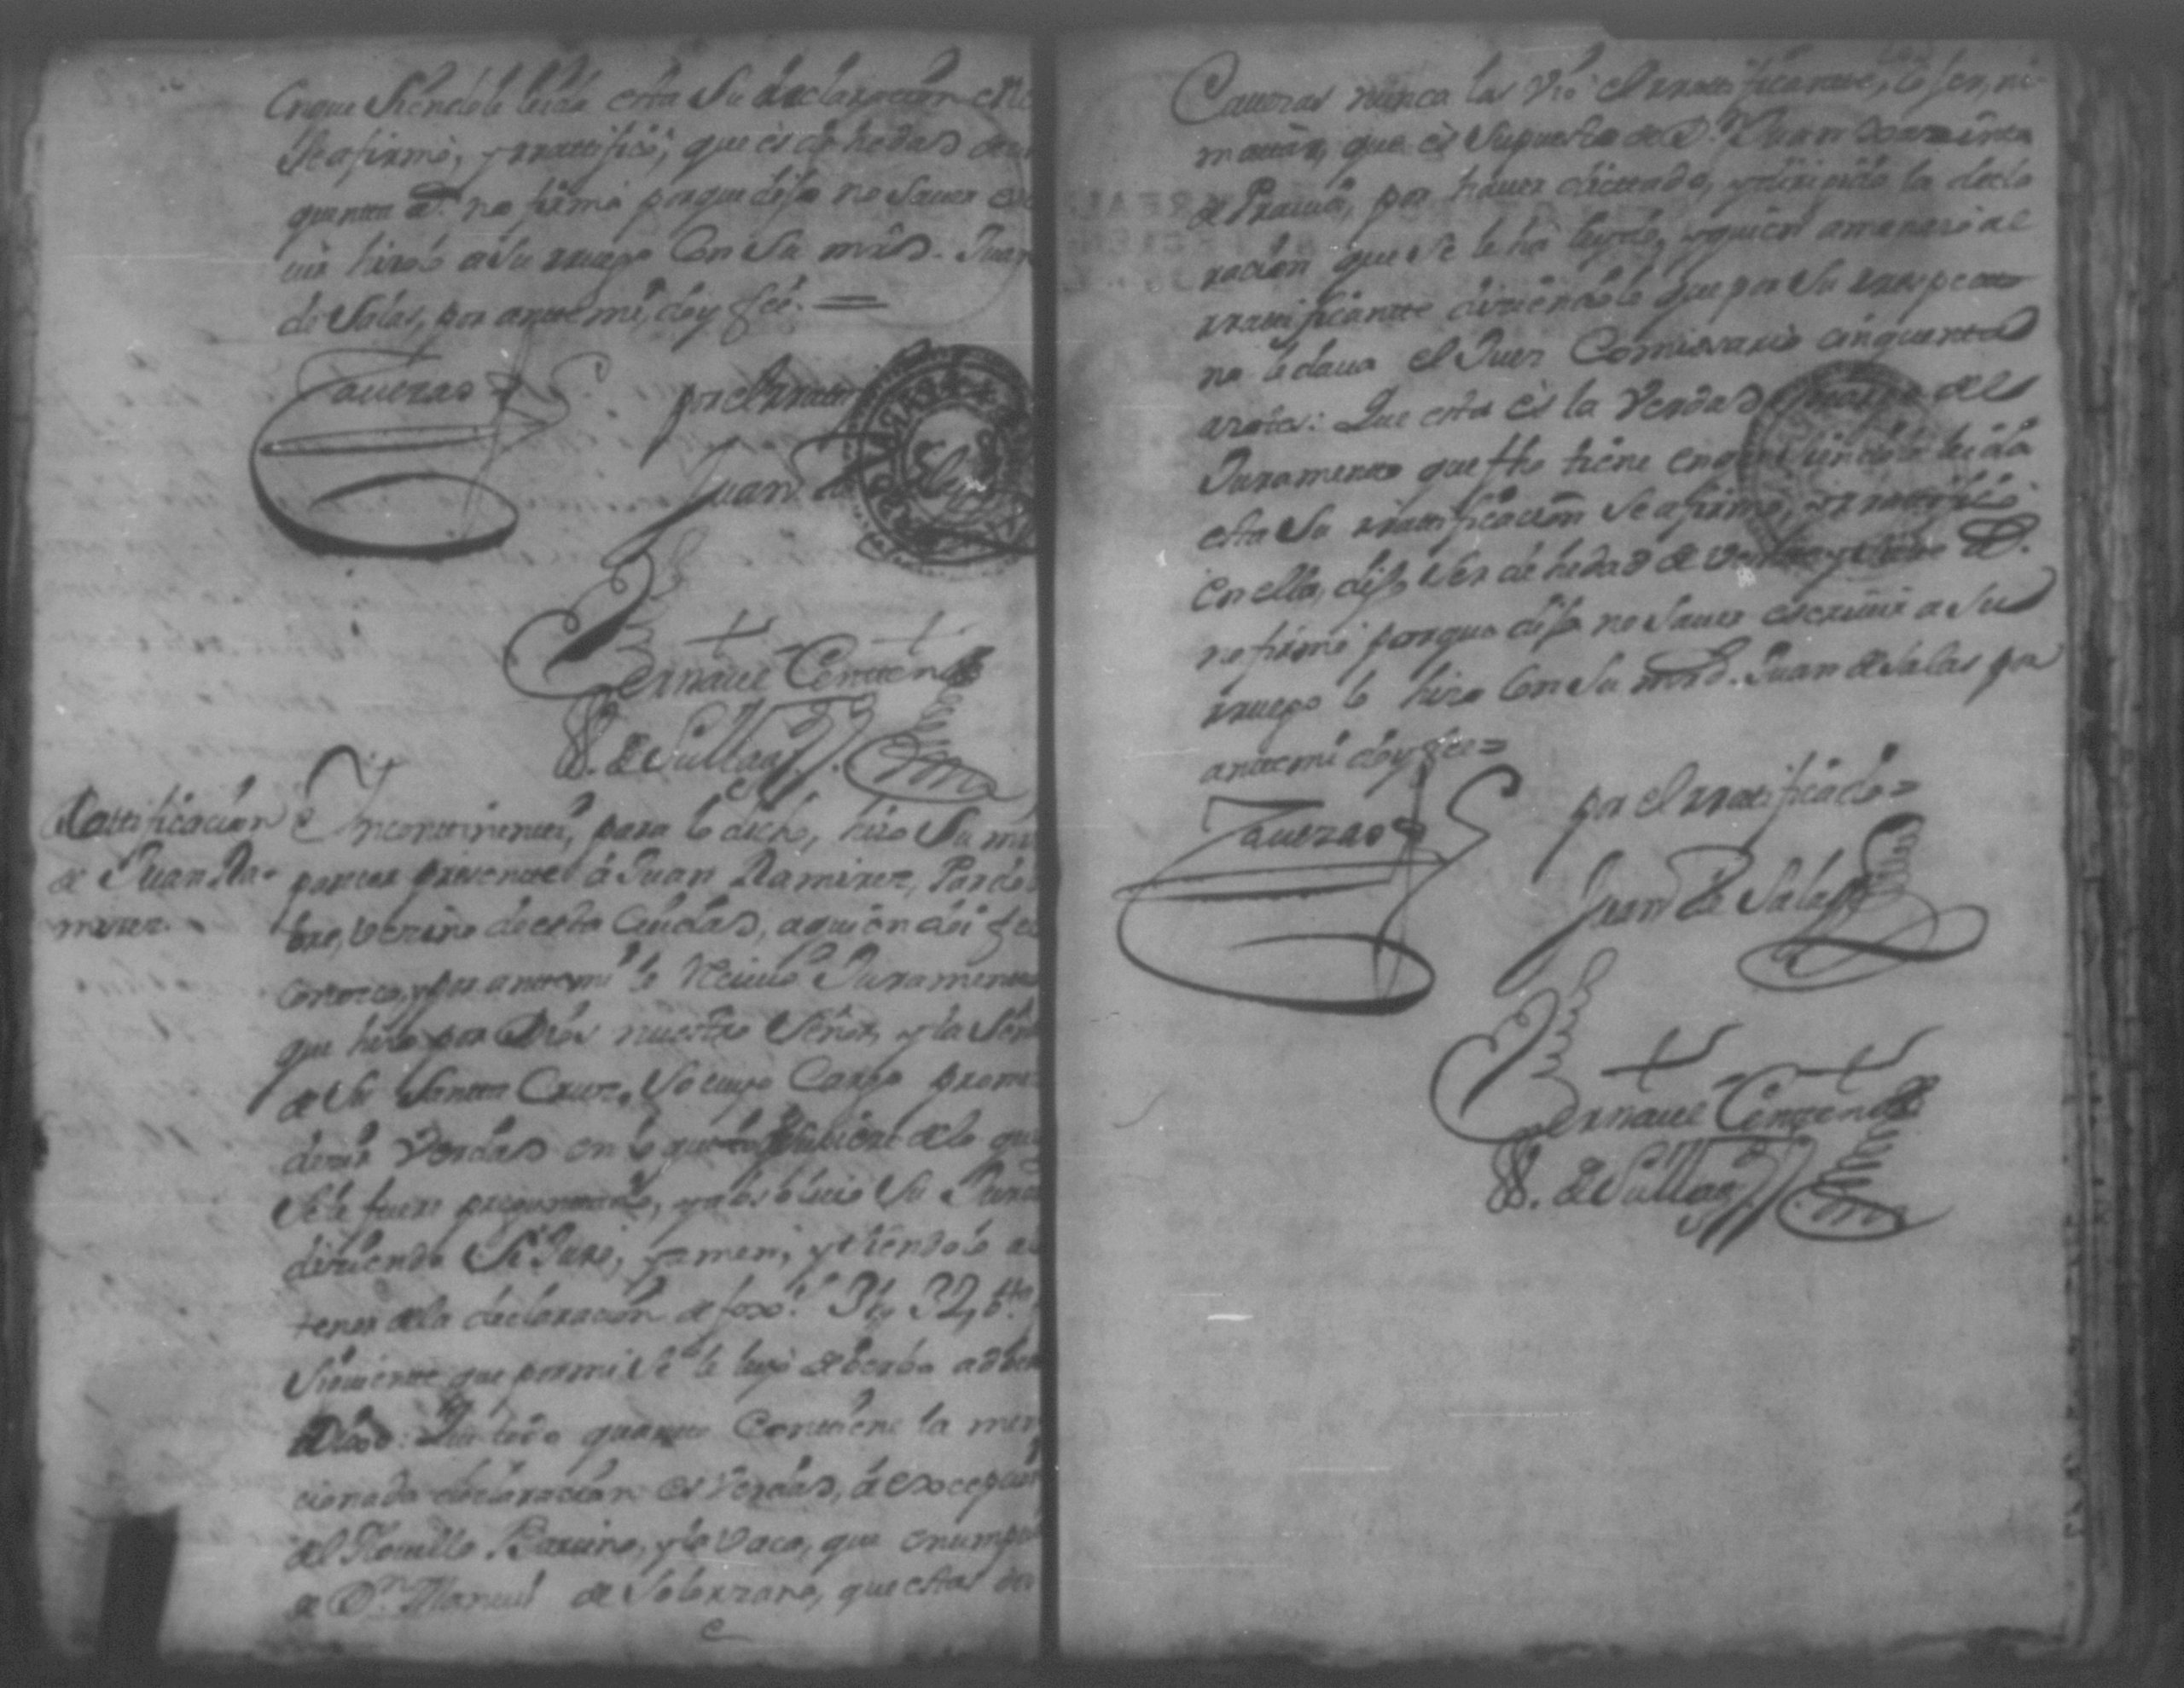 enque Siendole leida esta Su declaracion en ella
Se afirmó, y rratificó, que és de hedad de
quentta a.s no firmó porque dijo no Sauer
uir hizolo a Su rruego Con Su mrd. Juan
de Salas, por antte mi, doy feé. =
Taueras
por el rratti
Juan de Salas
Bernaue Centteno
D. de Sullan
Rattificacion
de Juan Ra-
mirez.
E Incontinentti, para lo dicho, hizo Su mrd
pareser presentte á Juan Ramirez, Pardo
bre, vezino de esta Ciudad, aquien doi feé
conozco, y por antte mi le Reciuió Juramentto
que hizo por Dios nuestro Señor, y la Señal
de Su Santta Cruz, So cuyo Cargo prome
dezir Verdad en lo que Supiere de lo que
Se le fuere preguntado, y absoluió Su Jura
diziendo Si Juro, y amen, y siendole al
tenor de la declaracion de fox.s 31, y 32, b.ta
Siguientte que por mi Se le leyó de berbo adber
Dixo: Que todo quantto Conttiene la men
cionada declaracion es Verdad, á excepcion
del Nouillo Barzino, y la Vaca, que
de D.n Manuel de Solorzano, que estas dos
Cauezas nunca las Vió el rrattificantte, cojer, ni
mattar, que és Supuesto de D.n Juan
de Prauia, por hauer dicttado, y dirigido la decla
racion que Se le há leydo, y quien amenazó al
rrattificantte diziendole que por Su rrespectto
no le daua el Juez Comissario cinquentta
azotes: Que esta és la Verdad del
Juramentto que fho tiene en que Siendole leida
esta Su rrattificacion Se afirmó, y rrattificó
en ella, dijo Ser de hedad de a.s
no firmó porque dijo no Sauer escriuir a Su
rruego lo hizo Con Su mrd. Juan de Salas por
antte mi doy feé =
Taueras
por el rrattificado =
Juan de Salas
Bernaue Centteno
D. de Sullan